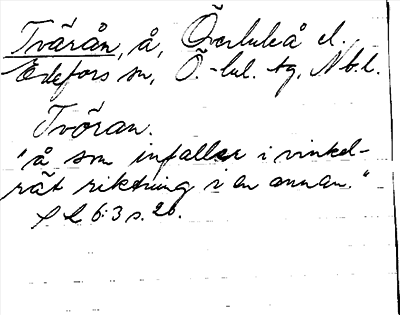 Tvärån, å, Överluleå el.
Edefors sn, Ö.-lul. tg, Nb.l.
Tvöran.
"å som infaller i vinkel-
rät riktning i en annan."
S L 6:3 s. 26.